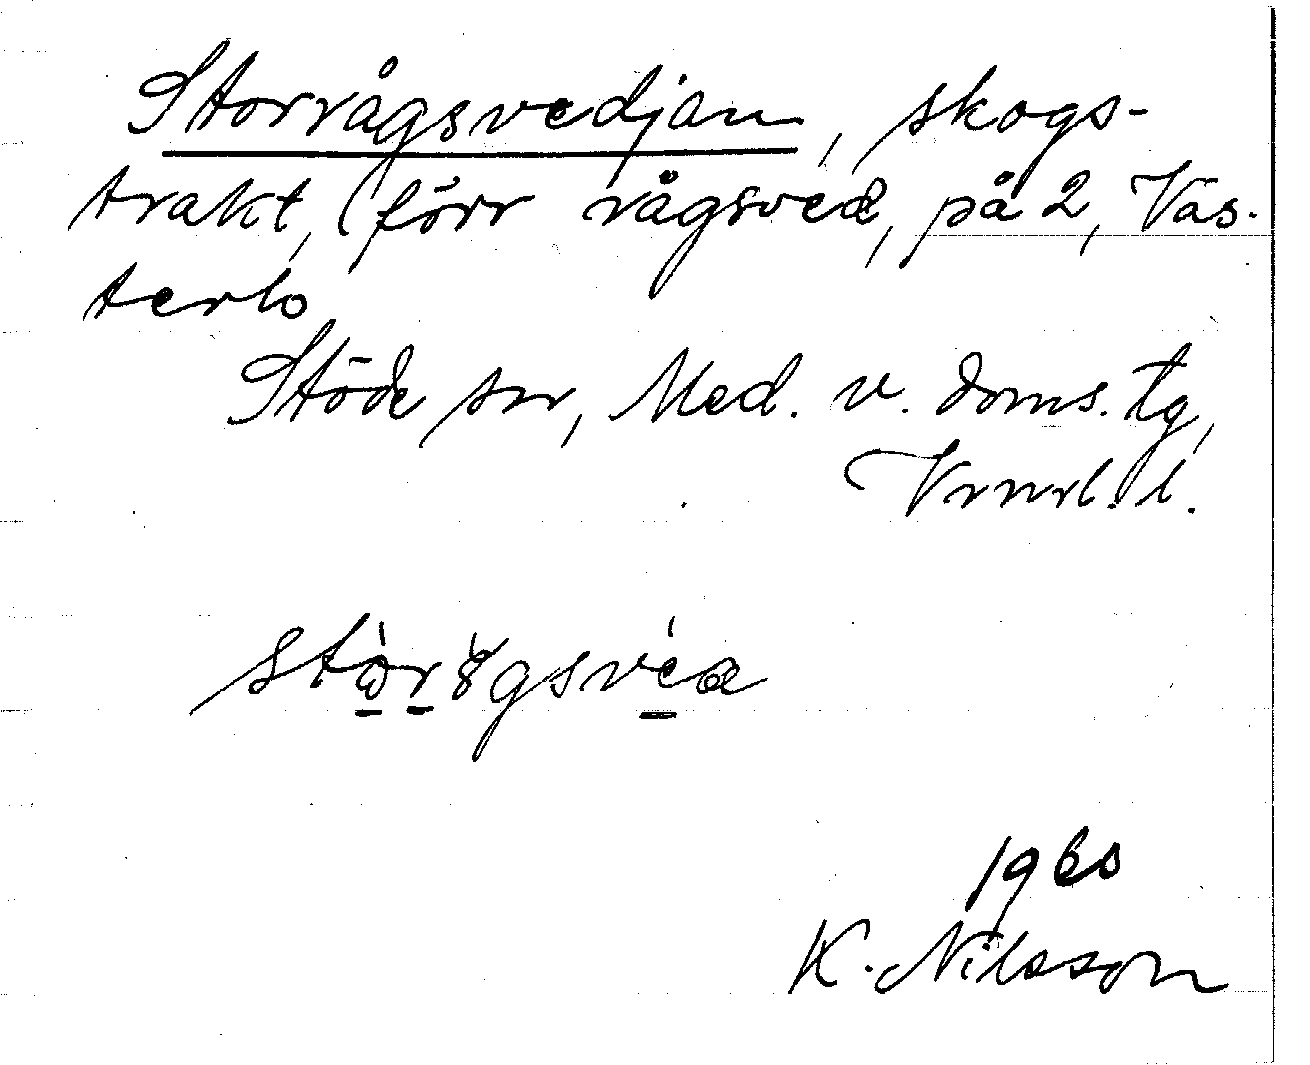 Storrågsvedjan, skogs-
trakt, (förr rågsved, på 2, Väs-
terlo
Stöde sn, Med. v. doms. tg,
Vrnrl. l.
1960
K. Nilsson